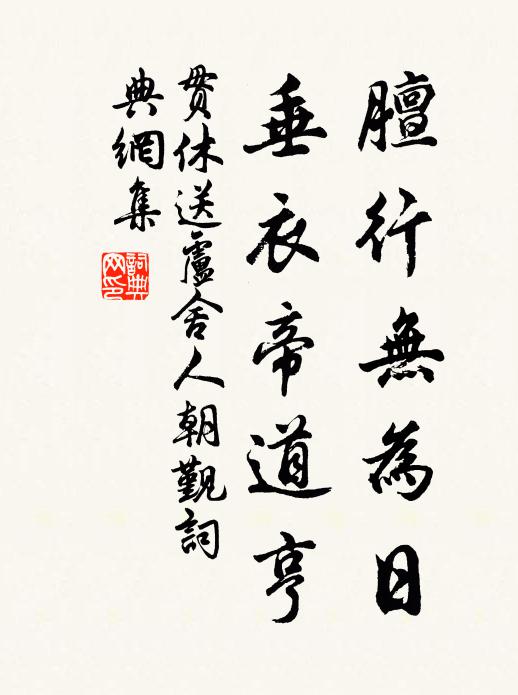 膻行無為日
垂衣帝道亨
貫休送盧舍人朝覲詞
典網集
詞典網印